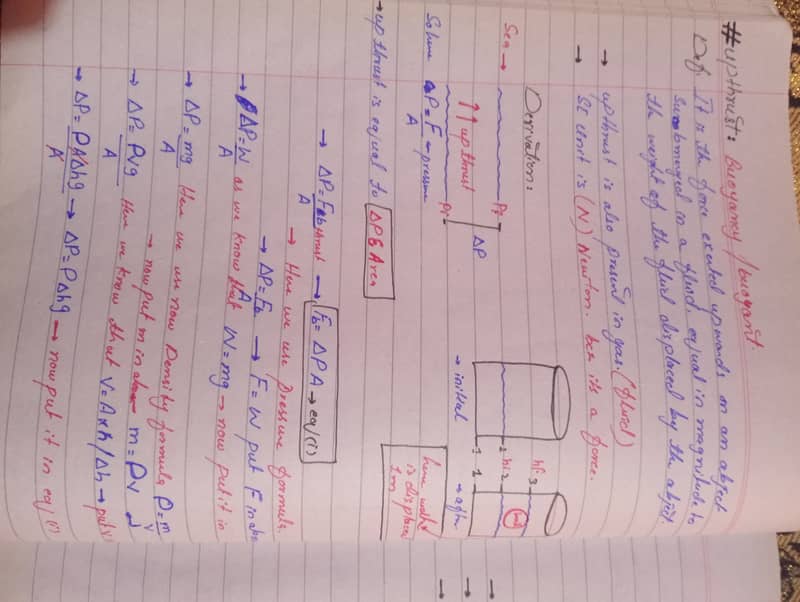 #upthrust: Buoyancy / buoyant.
Def: It is the force exerted upwards on an object
submerged in a fluid, equal in magnitude to
the weight of the fluid displaced by the object
→ upthrust is also present in gas. (fluid)
→ SI unit is (N) Newton. bcz its a force.
Derivation:
Sea →
P₂
↑↑ upthrust
ΔP
→ initial
hi: 2
1
hf: 3
2
1
→ after
here water
is displaced
1m
So here ΔP = F ← pressure
A
→ upthrust is equal to ΔP & Area
→ ΔP = Fb thrust → Fb = ΔP A → eq (i)
A
→ Here we use pressure formula
→ ΔP = Fb → F = W put F in above
A
→ ΔP = W as we know that W = mg → now put it in
A
→ ΔP = mg Here we use now Density formula ρ = m
A
v
→ now put m in above m = ρv
→ ΔP = ρVg Here we know that V = A×h/Δh → put V
A
→ ΔP = ρAΔhg → ΔP = ρΔhg → now put it in eq (i)
A